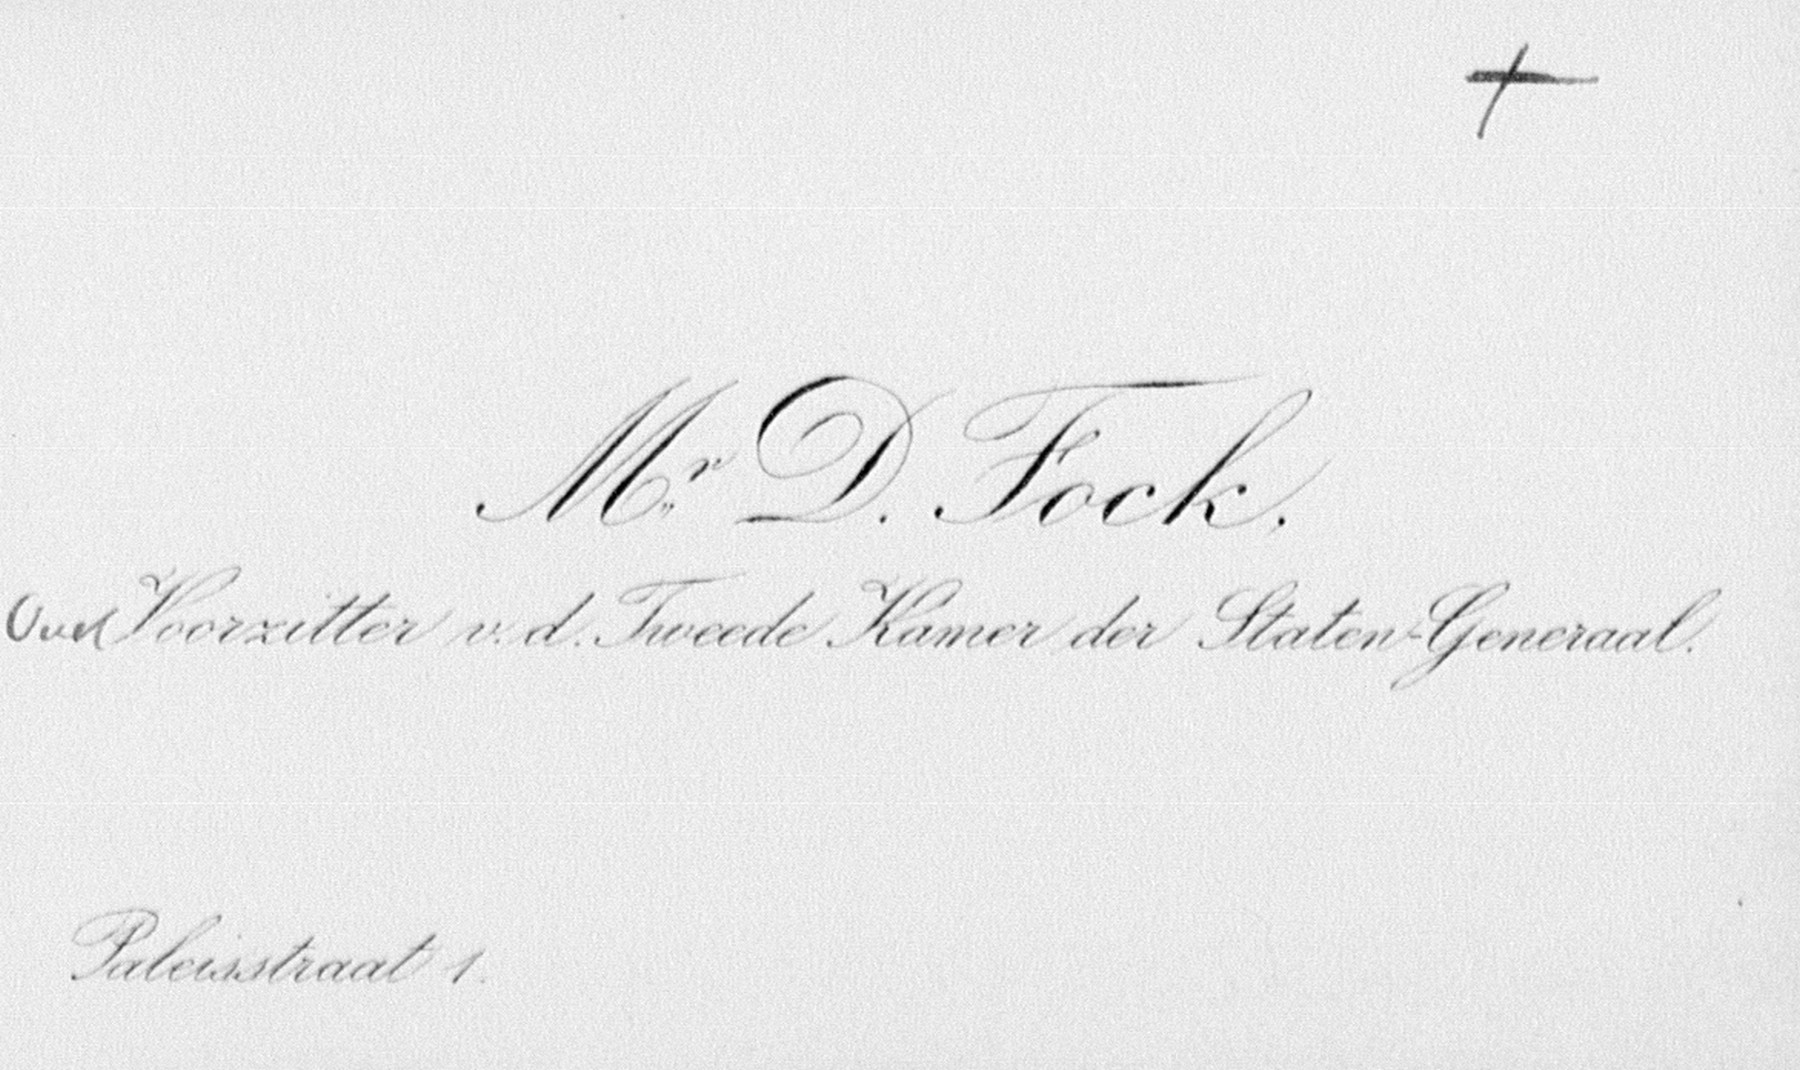 Mr. D. Fock,
Oud Voorzitter v. d. Tweede Kamer der Staten-Generaal.
Paleisstraat 1.